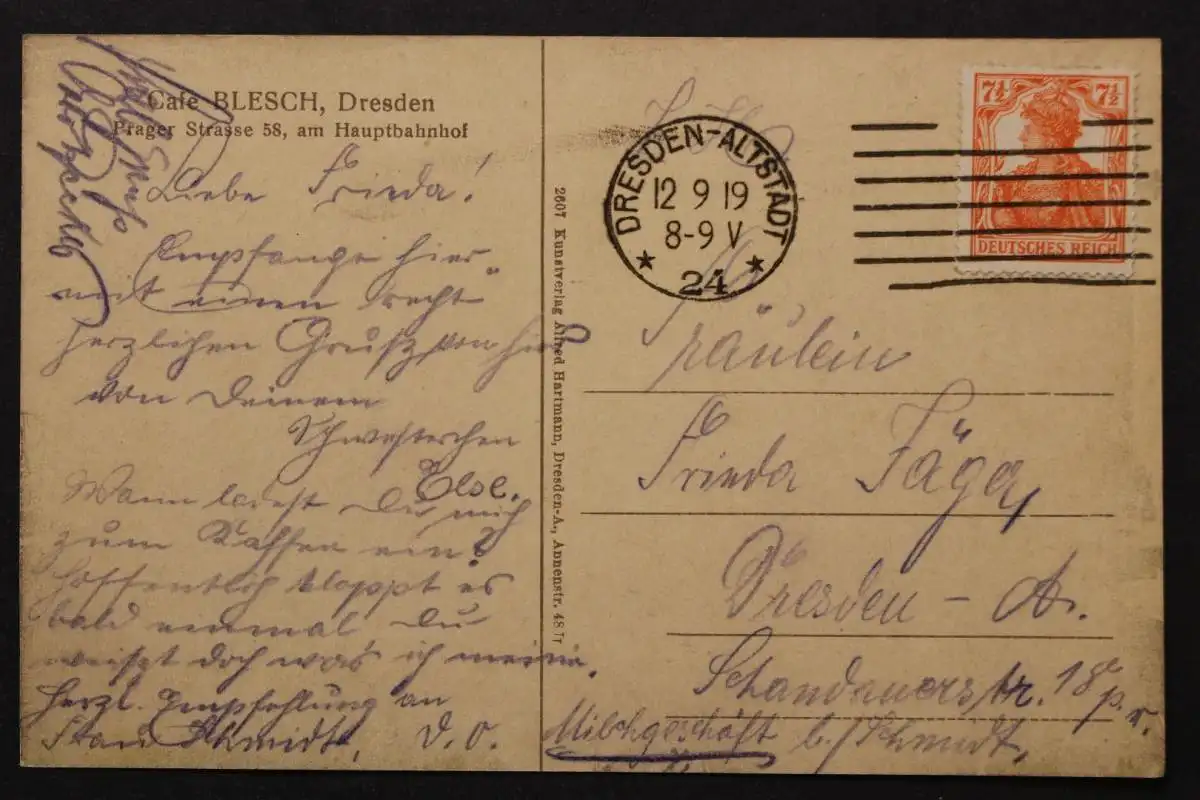 Café BLESCH, Dresden
Prager Strasse 58, am Hauptbahnhof
Liebe Frieda!
Empfange hier
mit einen recht
herzlichen Gruß von hier
von Deinem
Schwesterchen
Else.
Wann ladest Du mich
zum Kaffee ein?
Hoffentlich kloppt es
bald einmal, Du
weißt doch was ich meine.
Herzl. Empfehlung an
Frau Schmidt, D. O.
2607 Kunstverlag Alfred Hartmann, Dresden-A., Annenstr. 48 Tr
DRESDEN-ALTSTADT
12 9 19
8-9 V
* 24 *
7½ 7½
DEUTSCHES REICH
Fräulein
Frieda Jäger
Dresden - A.
Schandauerstr. 18 p. r.
Milchgeschäft b./Schmidt,